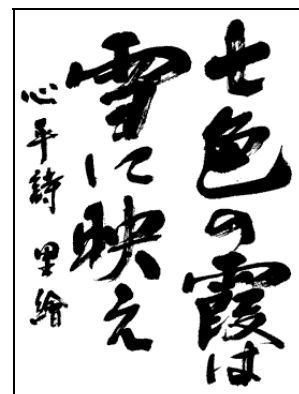 七色の霞は
雪に映え
心平詩 里繪